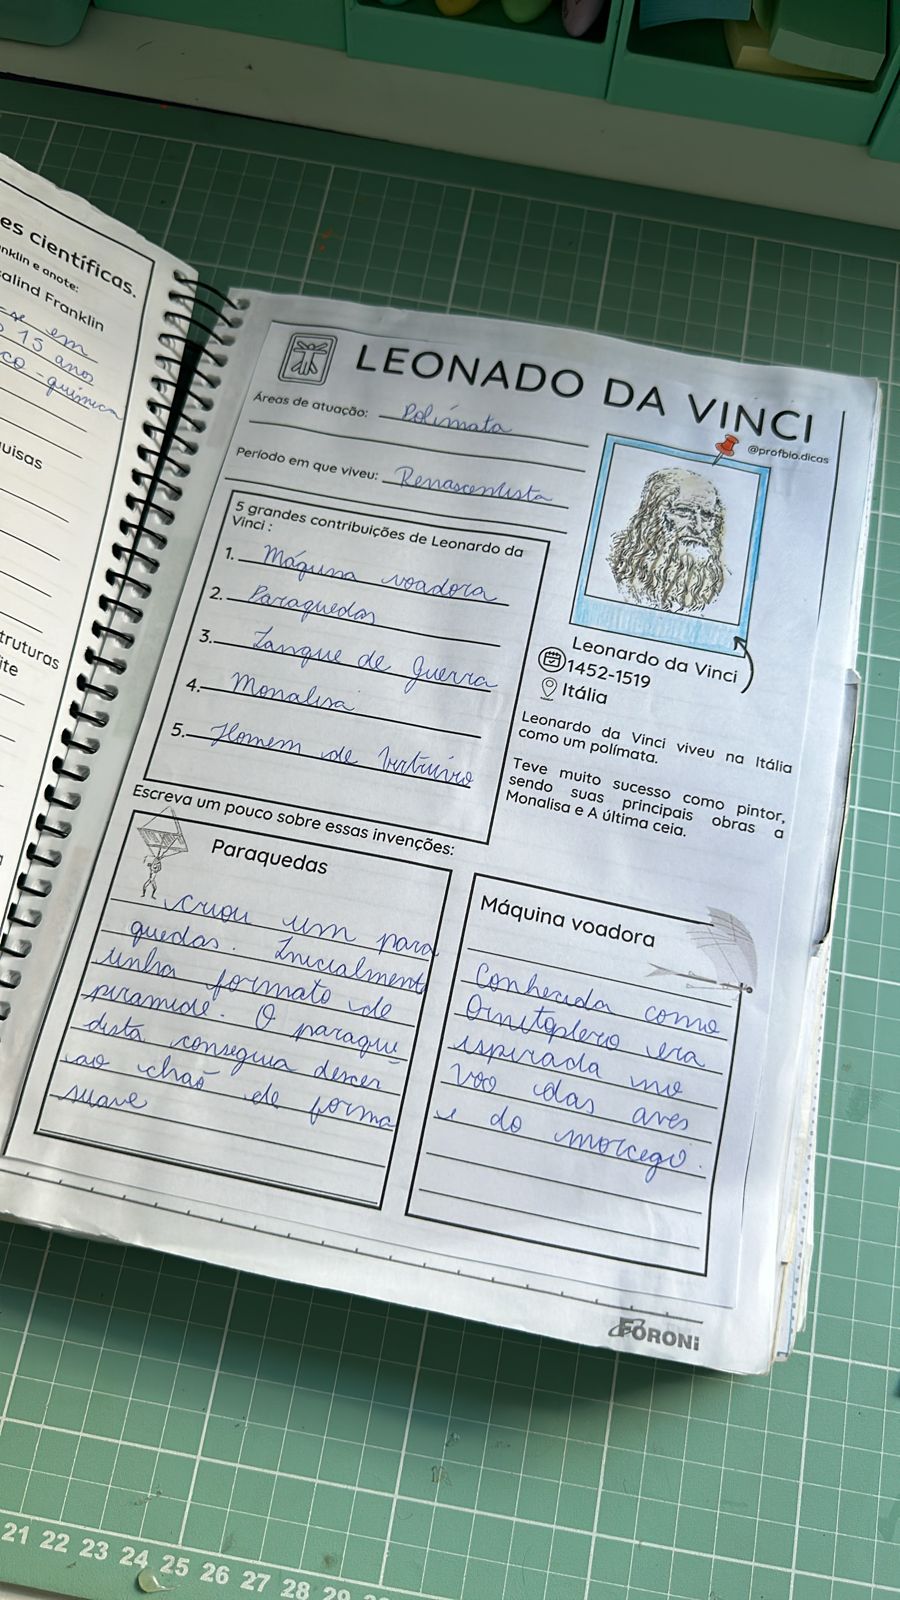 es científicas.
nklin e anote:
alind Franklin
-se em
15 anos
co-química
uisas
truturas
ite
LEONADO DA VINCI
Áreas de atuação: Polímata
@profbio.dicas
Período em que viveu: Renascentista
5 grandes contribuições de Leonardo da
Vinci :
1. Máquina voadora
2. Paraquedas
3. Tanque de guerra
4. Monalisa
5. Homem de Vitruvio
Leonardo da Vinci
1452-1519
Itália
Leonardo da Vinci viveu na Itália
como um polímata.
Teve muito sucesso como pintor,
sendo suas principais obras a
Monalisa e A última ceia.
Escreva um pouco sobre essas invenções:
Paraquedas
criou um para
quedas. Inicialment
tinha formato de
piramide. O paraque
dista conseguia descer
ao chão de forma
suave
Máquina voadora
Conhecida como
Ornitoptero era
ispirada no
voo das aves
e do morcego.
FORONI
21 22 23 24 25 26 27 28 29